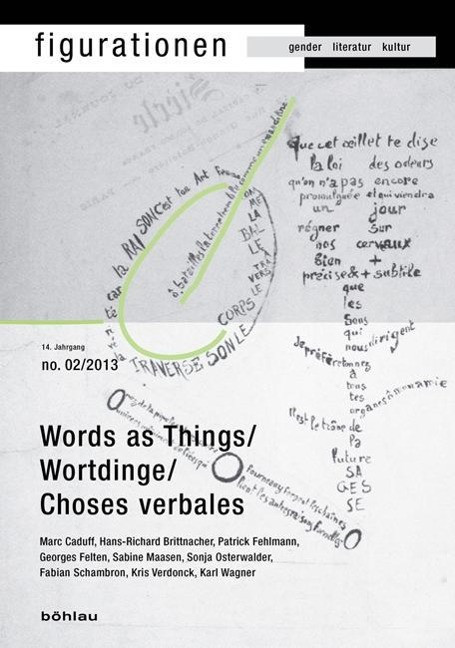 figurationen
gender literatur kultur
que cet œillet te dise
la loi des odeurs
qu'on n'a pas encore
promulguée et qui viendra
un jour
régner sur
nos cerveaux
bien +
précise & + subtile
que
les
sons
qui
nous dirigent
je préfère ton nez
à
tous
tes
organes ô mon amie
Il est le trône de
la
future
SA
GES
SE
la RAISON C'est ton Art Femme
TRAVERSE SON LE CORPS
14. Jahrgang
no. 02/2013
Words as Things/
Wortdinge/
Choses verbales
Marc Caduff, Hans-Richard Brittnacher, Patrick Fehlmann,
Georges Felten, Sabine Maasen, Sonja Osterwalder,
Fabian Schambron, Kris Verdonck, Karl Wagner
böhlau